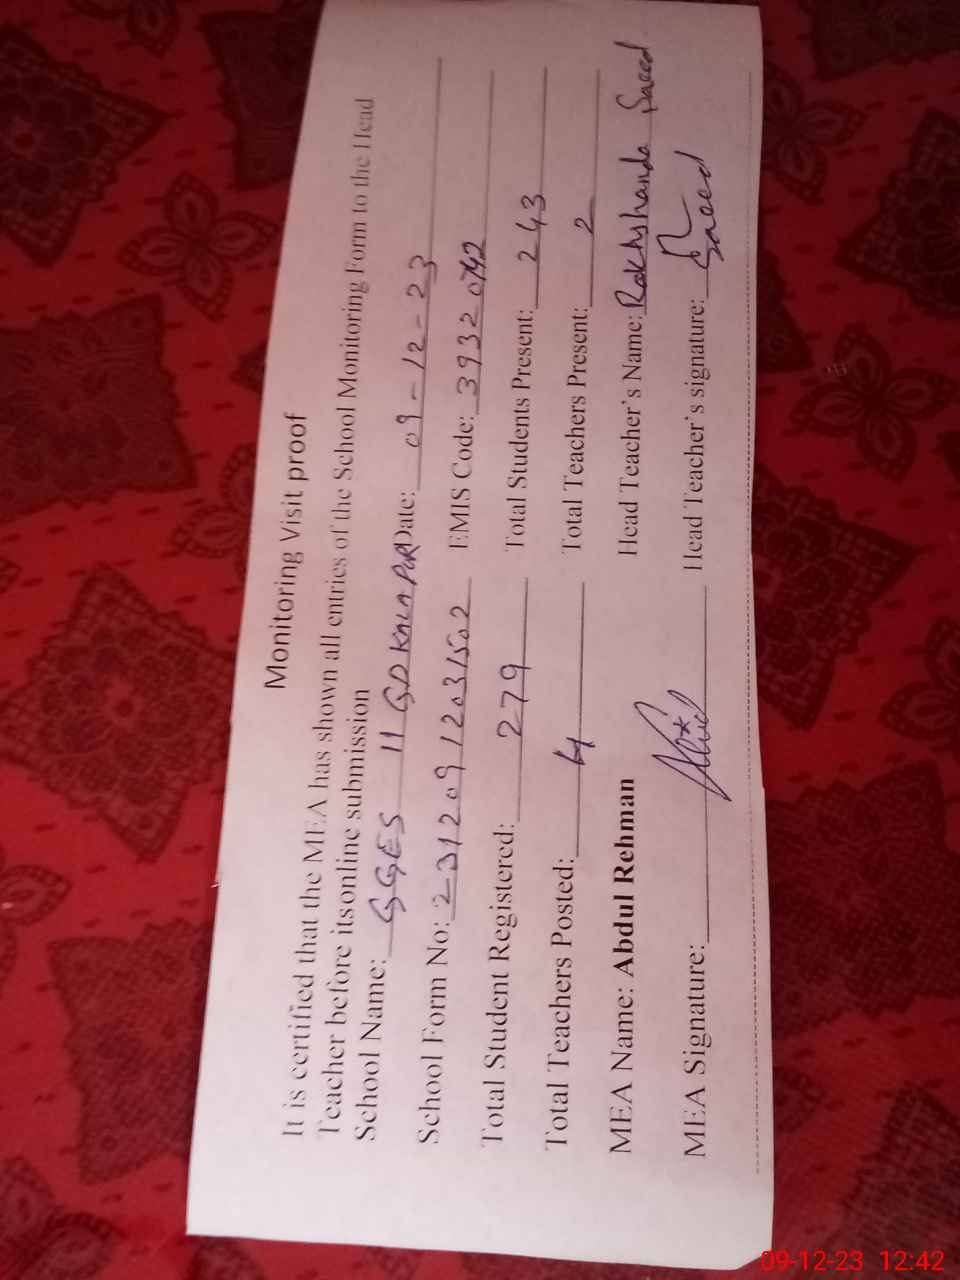 Monitoring Visit proof
It is certified that the MEA has shown all entries of the School Monitoring Form to the Head
Teacher before itsonline submission
School Name: GGES 11 GD KALA PUR Date: 09-12-23
School Form No: 231209 12031502 EMIS Code: 39320742
Total Student Registered: 279 Total Students Present: 243
Total Teachers Posted: 4 Total Teachers Present: 2
MEA Name: Abdul Rehman Head Teacher's Name: Rakhshanda Saeed
MEA Signature: Head Teacher's signature: Saeed
09-12-23 12:42